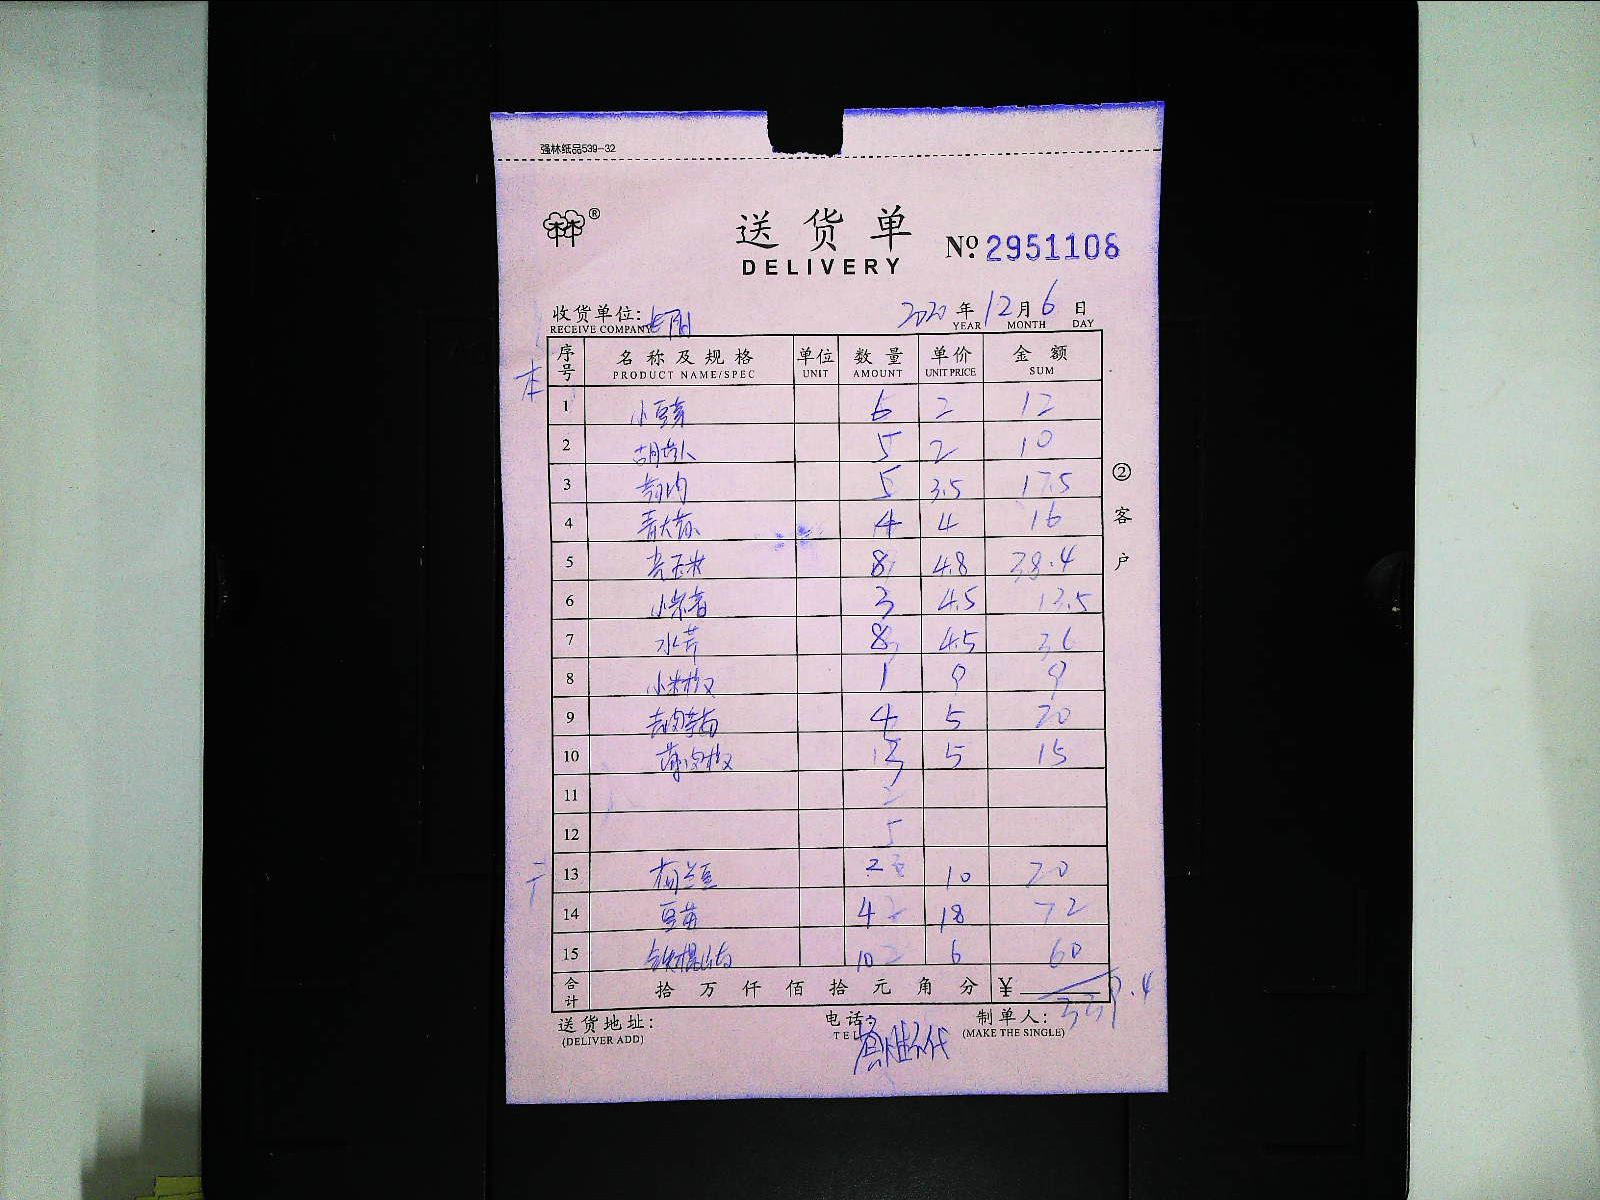 强林纸品539-32
林林®
送货单
DELIVERY
№ 2951106
收货单位:
RECEIVE COMPANY
2020年12月6日
YEAR MONTH DAY
序号 名称及规格 单位 数量 单价 金额
PRODUCT NAME/SPEC UNIT AMOUNT UNIT PRICE SUM
本
1 小豆芽 6 2 12
2 胡萝卜 5 2 10
3 5 3.5 17.5
4 青大蒜 4 4 16
5 玉米 8 4.8 38.4
6 小米 3 4.5 13.5
7 水芹 8 4.5 36
8 小米椒 1 9 9
9 4 5 20
10 薄皮椒 3 5 15
11
12 5
13 荷兰豆 2 10 20
14 豆苗 4 18 72
15 铁棍山药 10 6 60
合计 拾万仟佰拾元角分 ¥ 339.4
②客户
送货地址:
(DELIVER ADD)
电话:
TEL
制单人:
(MAKE THE SINGLE)